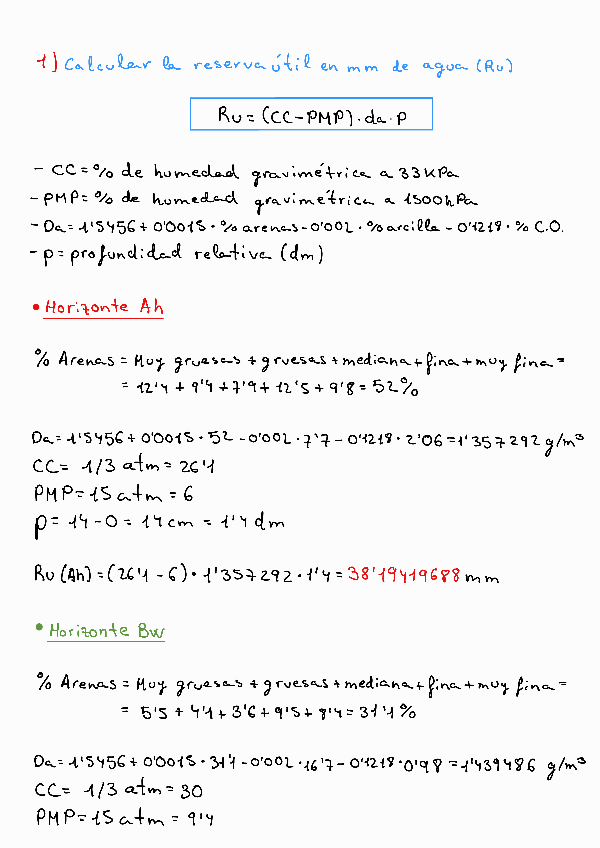 1) Calcular la reserva útil en mm de agua (Ru)
Ru = (CC-PMP)·da·p
- CC = % de humedad gravimétrica a 33KPa
- PMP = % de humedad gravimétrica a 1500hPa
- Da = 1'5456 + 0'0015 · % arenas - 0'002 · % arcilla - 0'1218 · % C.O.
- p = profundidad relativa (dm)
• Horizonte Ah
% Arenas = Muy gruesas + gruesas + mediana + fina + muy fina =
= 12'4 + 9'4 + 7'9 + 12'5 + 9'8 = 52%
Da = 1'5456 + 0'0015 · 52 - 0'002 · 7'7 - 0'1218 · 2'06 = 1'357292 g/m³
CC = 1/3 atm = 26'1
PMP = 15 atm = 6
p = 14 - 0 = 14 cm = 1'4 dm
Ru (Ah) = (26'1 - 6) · 1'357292 · 1'4 = 38'19419688 mm
• Horizonte Bw
% Arenas = Muy gruesas + gruesas + mediana + fina + muy fina =
= 5'5 + 4'1 + 3'6 + 9'5 + 8'4 = 31'1 %
Da = 1'5456 + 0'0015 · 31'1 - 0'002 · 16'7 - 0'1218 · 0'98 = 1'439486 g/m³
CC = 1/3 atm = 30
PMP = 15 atm = 9'4